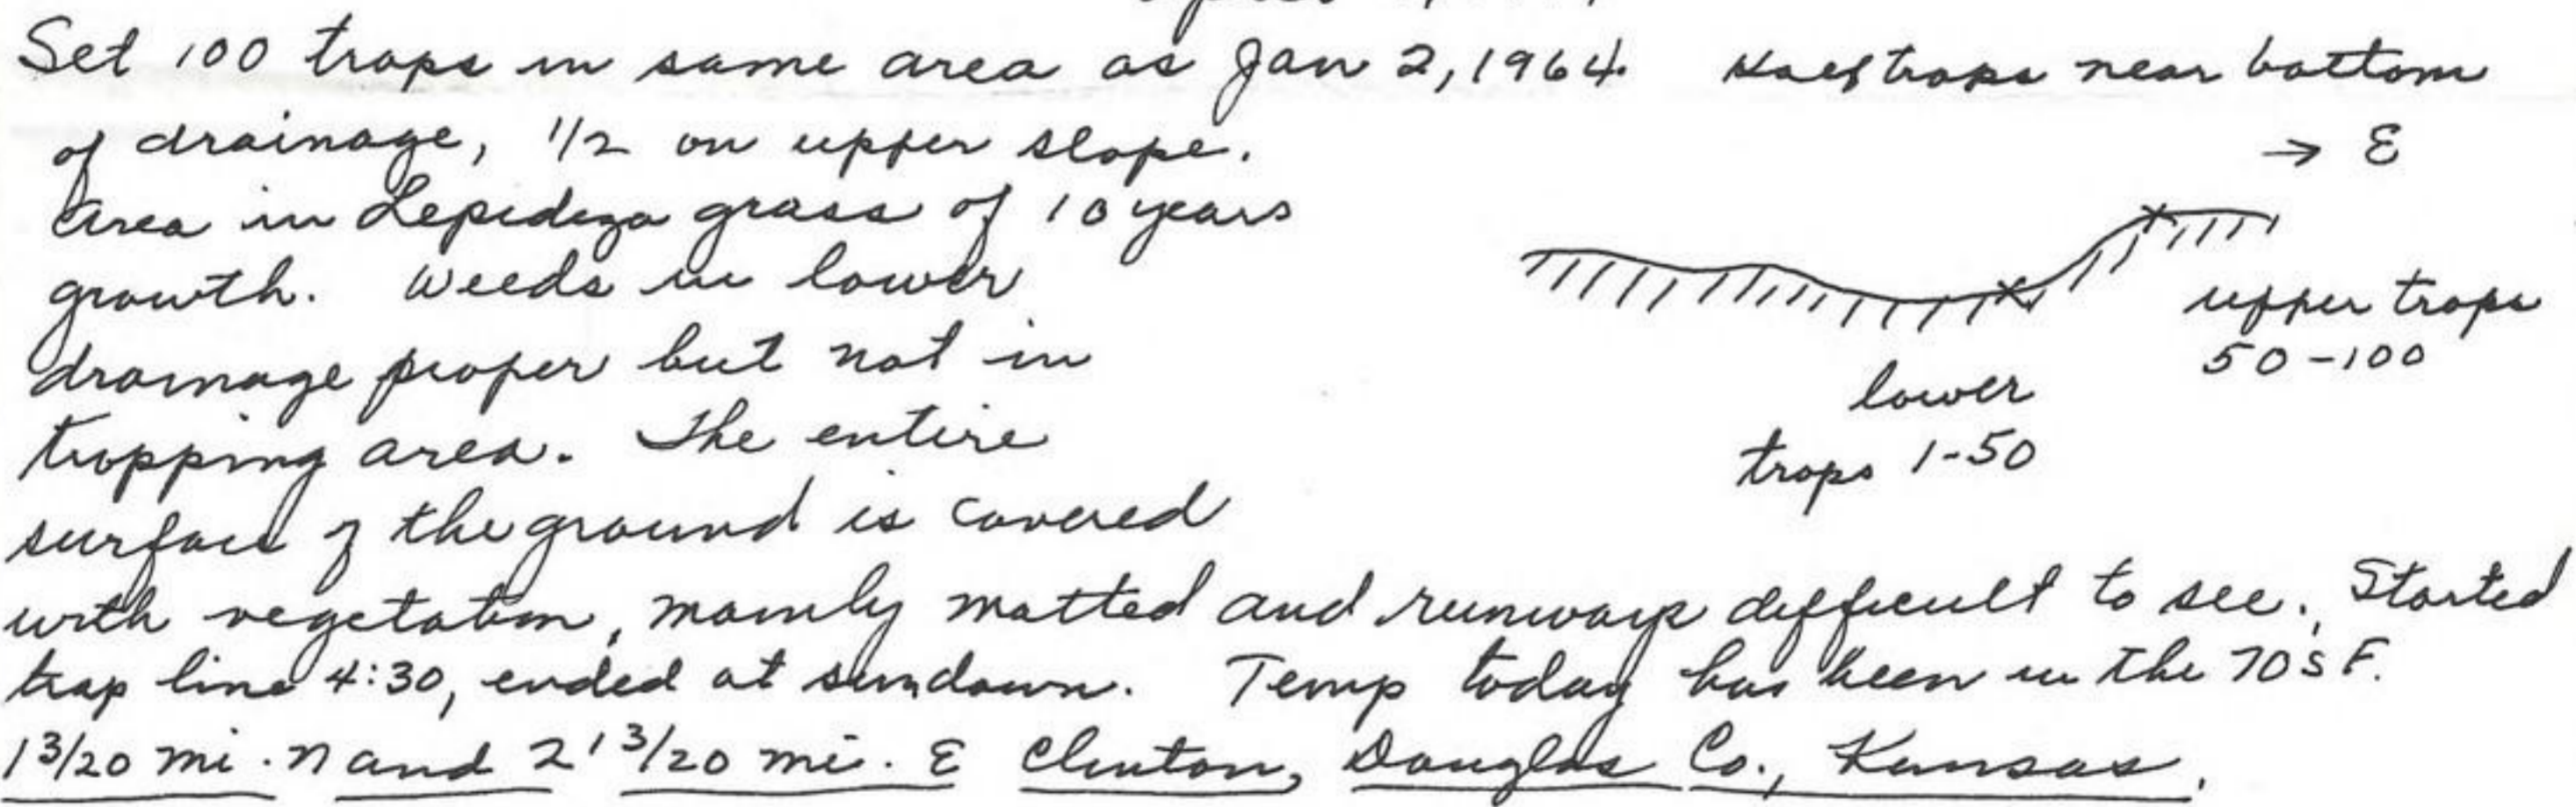 Set 100 traps in same area as Jan 2, 1964. Half traps near bottom
of drainage, 1/2 on upper slope.
→ E
Area in Lepedeza grass of 10 years
growth. Weeds in lower
drainage proper but not in
trapping area. The entire
surface of the ground is covered
upper traps
50-100
lower
traps 1-50
with vegetation, mainly matted and runways difficult to see. Started
trap line 4:30, ended at sundown. Temp today has been in the 70s F.
1 3/20 mi. N and 2 13/20 mi. E Clinton, Douglas Co., Kansas.